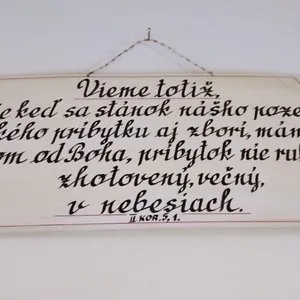 Vieme totiž,
že keď sa stánok nášho poze
kého príbytku aj zborí, mám
om od Boha, príbytok nie ru
zhotovený, večný,
v nebesiach.
II KOR. 5, 1.